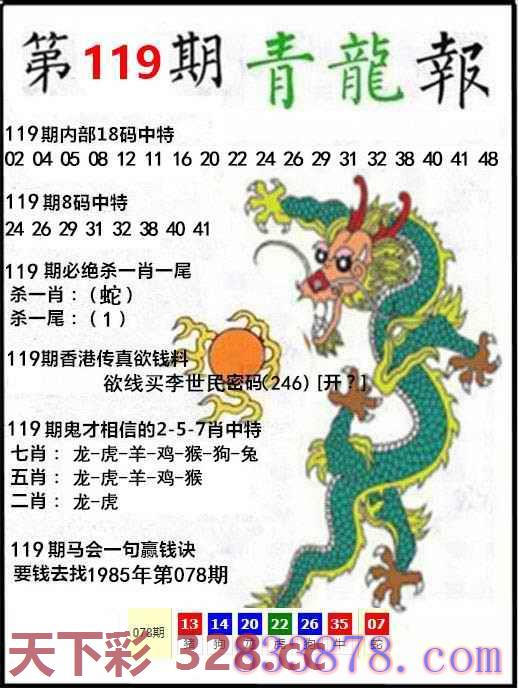 第119期青龍報
119期内部18码中特
02 04 05 08 12 11 16 20 22 24 26 29 31 32 38 40 41 48
119期8码中特
24 26 29 31 32 38 40 41
119期必绝杀一肖一尾
杀一肖：（蛇）
杀一尾：（1）
119期香港传真欲钱料
欲线买李世民密码(246) [开？]
119期鬼才相信的2-5-7肖中特
七肖：龙-虎-羊-鸡-猴-狗-兔
五肖：龙-虎-羊-鸡-猴
二肖：龙-虎
119期马会一句赢钱诀
要钱去找1985年第078期
078期 13 14 20 22 26 35 07
猪 狗 龙 虎 狗 牛 蛇
天下彩 328.cc
833878.com